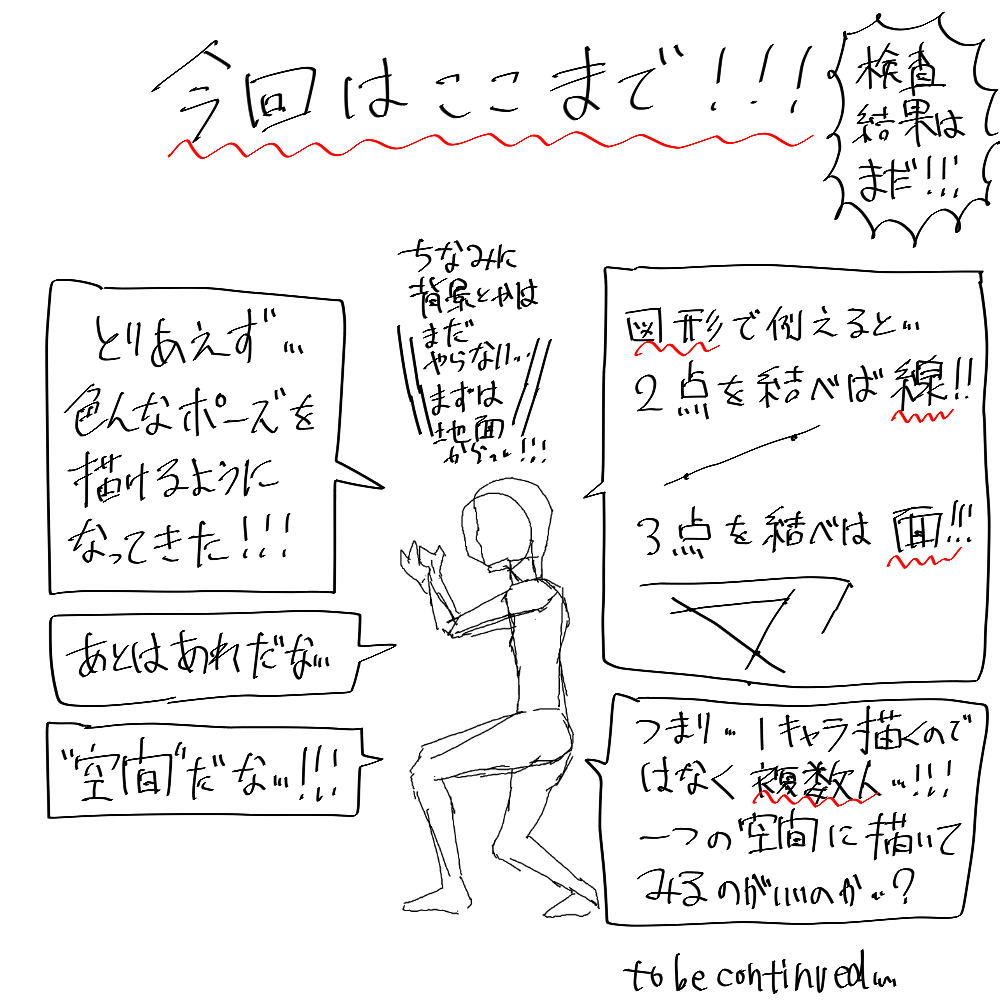 今回はここまで!!!
検査
結果は
まだ!!!
ちなみに
背景とかは
まだ
やらない…
まずは
地面
から…!!!
とりあえず…
色んなポーズを
描けるように
なってきた!!!
あとはあれだな…
"空間"だな…!!!
図形で例えると…
2点を結べば線!!
3点を結べは面!!!
つまり…1キャラ描くので
はなく複数人…!!!
一つの空間に描いて
みるのがいいのか…?
to be continued…